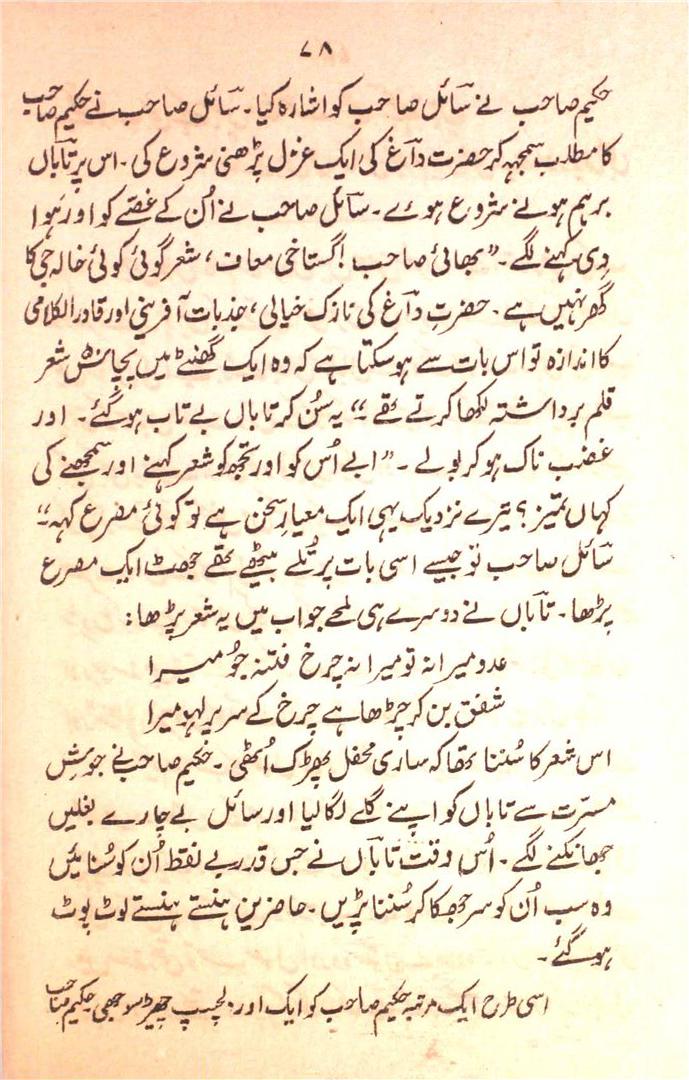 ۷۸
حکیم صاحب نے سائل صاحب کو اشارہ کیا۔ سائل صاحب نے حکیم صاحب
کا مطلب سمجھ کر حضرت داغ کی ایک غزل پڑھنی شروع کی۔ اس پر تاباں
برہم ہونے شروع ہوئے۔ سائل صاحب نے اُن کے غصّے کو اور ہَوا
دی کہنے لگے۔ ”بھائی صاحب! گستاخی معاف، شعر گوئی کوئی خالہ جی کا
گھر نہیں ہے۔ حضرتِ داغ کی نازک خیالی، جذبات آفرینی اور قادر الکلامی
کا اندازہ تو اس بات سے ہو سکتا ہے کہ وہ ایک گھنٹے میں پچاش شعر
قلم برداشتہ لکھا کرتے تھے۔“ یہ سُن کر تاباں بے تاب ہو گئے۔ اور
غضب ناک ہو کر بولے۔ ”ابے اُس کو اور تجھ کو شعر کہنے اور سمجھنے کی
کہاں تمیز؟ تیرے نزدیک یہی ایک معیارِ سخن ہے تو کوئی مصرع کہہ۔“
سائل صاحب تو جیسے اسی بات پر تُلے بیٹھے تھے جھٹ ایک مصرع
پڑھا۔ تاباں نے دوسرے ہی لمحے جواب میں یہ شعر پڑھا:
عدو میرا نہ تو میرا نہ چرخِ فتنہ جُو میرا
شفق بن کر چڑھا ہے چرخ کے سر پر لہو میرا
اس شعر کا سُننا تھا کہ ساری محفل پھڑک اُٹھی۔ حکیم صاحب نے جوشِ
مسرّت سے تاباں کو اپنے گلے لگا لیا اور سائل بے چارے بغلیں
جھانکنے لگے۔ اُس وقت تاباں نے جس قدر بے نقط اُن کو سُنائیں
وہ سب اُن کو سر جھکا کر سُننا پڑیں۔ حاضرین ہنستے ہنستے لوٹ پوٹ
ہو گئے۔
اسی طرح ایک مرتبہ حکیم صاحب کو ایک اور دلچسپ چھیڑ سوجھی حکیم صاحب